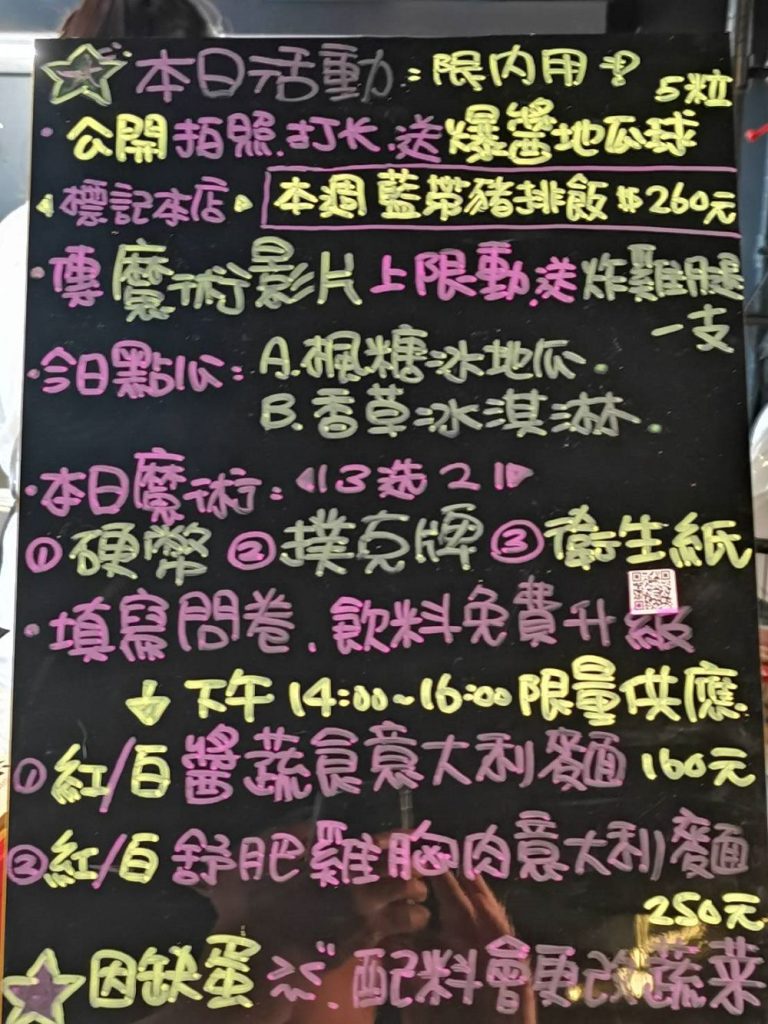 本日活動:限内用
公開拍照.打长.送爆醬地瓜球 5粒
標記本店 本週藍帶豬排飯$260元
·傳魔術影片上限動.送炸雞腿
一支
·今日點心:A.楓糖冰地瓜.
B.香草冰淇淋.
·本日魔術:3选2
①硬幣②撲克牌③衛生紙
·填寫問卷.飲料免費升級
下午14:00~16:00限量供應
①紅/白醬蔬食意大利麵160元
②紅/白舒肥雞胸肉意大利麵
250元
因缺蛋.配料會更改蔬菜